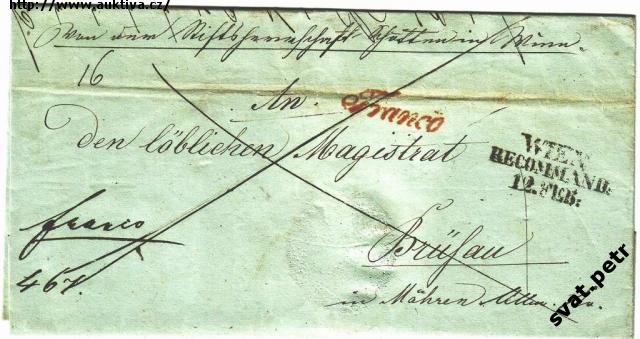 http://www.auktiva.cz/
Von der Stiftsherrschaft Schotten in Wien.
16
An
Franco
den löblichen Magistrat
WIEN
RECOMMAND:
12. FEB:
franco
Brüsau
467.
in Mähren
svat.petr